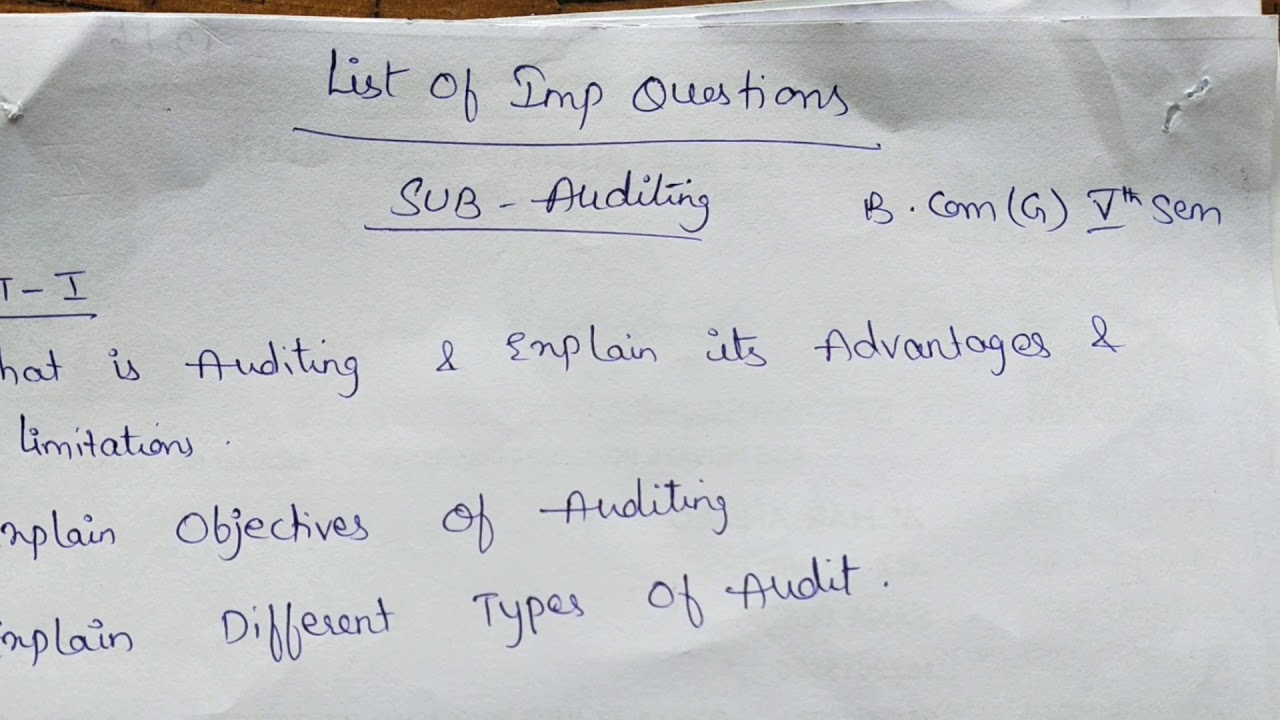 List Of Imp Questions
SUB - Auditing B. Com (G) Vth Sem
T - I
hat is Auditing & Explain its Advantages &
limitations.
nplain Objectives Of Auditing
Explain Different Types Of Audit.